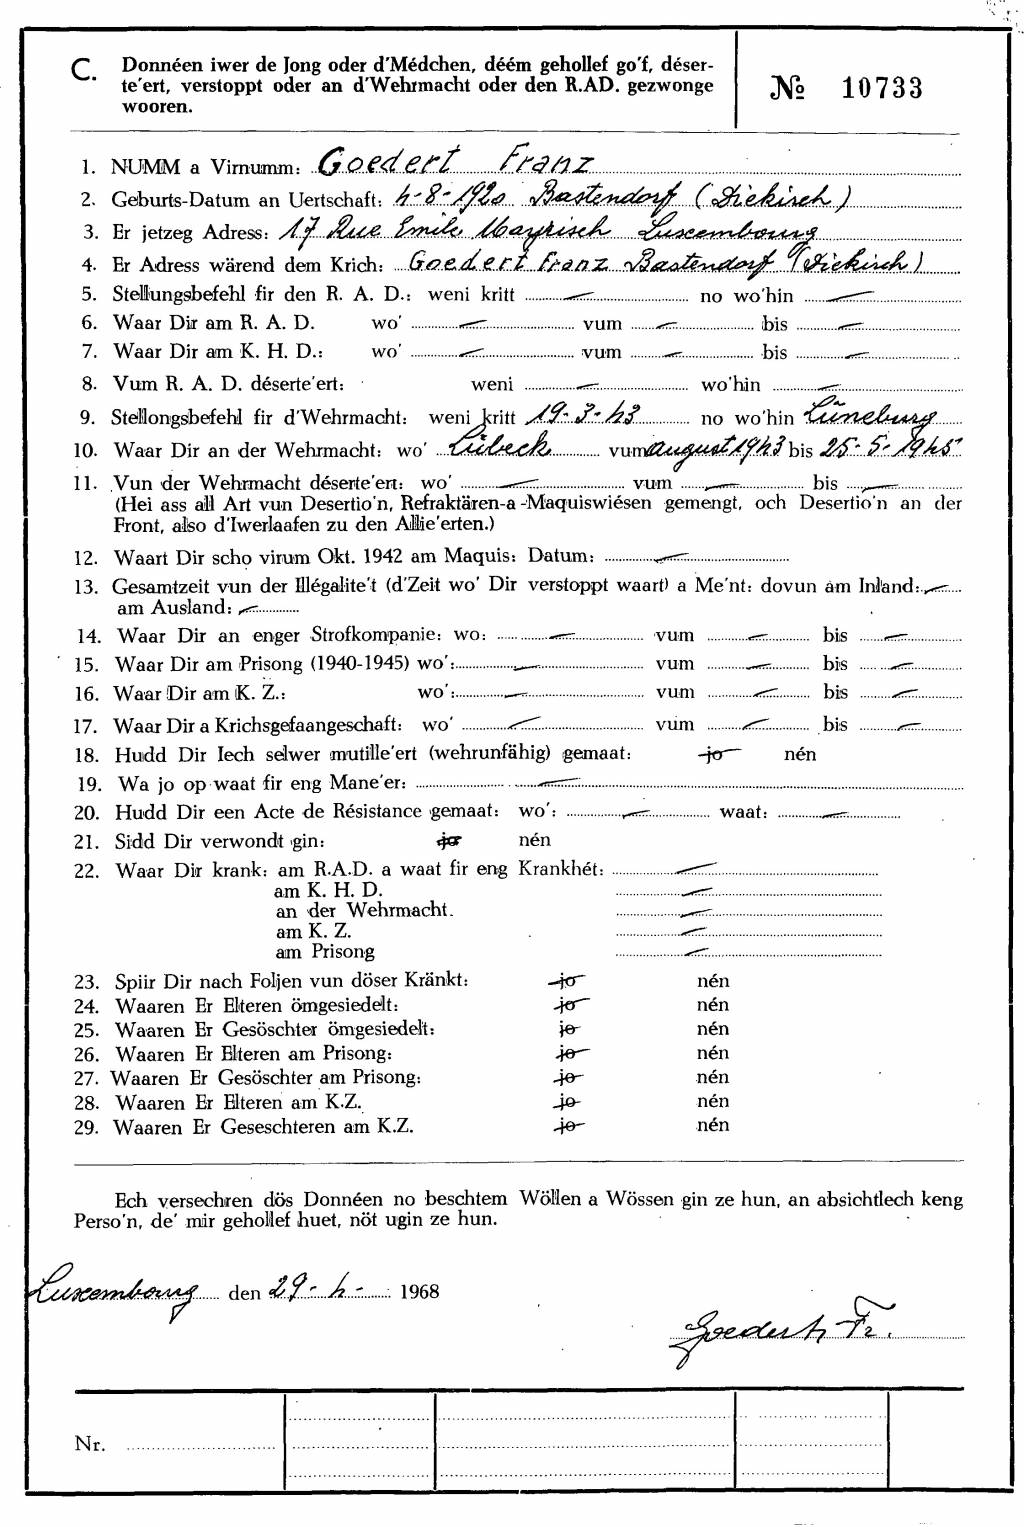 C. Donnéen iwer de Jong oder d'Médchen, déém gehollef go'f, déser-
te'ert, verstoppt oder an d'Wehrmacht oder den R.AD. gezwonge
wooren.
№ 10733
1. NUMM a Virnumm: Goedert Franz
2. Geburts-Datum an Uertschaft: 4-8-1920 Bastendorf (Diekirch)
3. Er jetzeg Adress: 17 Rue Emile Mayrisch Luxembourg
4. Er Adress wärend dem Krich: Goedert Franz Bastendorf (Diekirch)
5. Stellungsbefehl fir den R. A. D.: weni kritt — no wo'hin —
6. Waar Dir am R. A. D. wo' — vum — bis —
7. Waar Dir am K. H. D.: wo' — vum — bis —
8. Vum R. A. D. déserte'ert: weni — wo'hin —
9. Stellongsbefehl fir d'Wehrmacht: weni kritt 19-3-43 no wo'hin Lüneburg
10. Waar Dir an der Wehrmacht: wo' Lübeck vum august 1943 bis 25-5-1945
11. Vun der Wehrmacht déserte'ert: wo' — vum — bis —
(Hei ass all Art vun Desertio'n, Refraktären-a-Maquiswiésen gemengt, och Desertio'n an der
Front, also d'Iwerlaafen zu den Allie'erten.)
12. Waart Dir scho virum Okt. 1942 am Maquis: Datum: —
13. Gesamtzeit vun der Illégalite't (d'Zeit wo' Dir verstoppt waart) a Me'nt: dovun am Inland: —
am Ausland: —
14. Waar Dir an enger Strofkompanie: wo: — vum — bis —
15. Waar Dir am Prisong (1940-1945) wo': — vum — bis —
16. Waar Dir am K. Z.: wo': — vum — bis —
17. Waar Dir a Krichsgefaangeschaft: wo' — vum — bis —
18. Hudd Dir Iech selwer mutille'ert (wehrunfähig) gemaat: jo nén
19. Wa jo op waat fir eng Mane'er: —
20. Hudd Dir een Acte de Résistance gemaat: wo': — waat: —
21. Sidd Dir verwondt gin: jo nén
22. Waar Dir krank: am R.A.D. a waat fir eng Krankhét: —
am K. H. D. —
an der Wehrmacht. —
am K. Z. —
am Prisong —
23. Spiir Dir nach Foljen vun döser Kränkt: jo nén
24. Waaren Er Elteren ömgesiedelt: jo nén
25. Waaren Er Gesöschter ömgesiedelt: jo nén
26. Waaren Er Elteren am Prisong: jo nén
27. Waaren Er Gesöschter am Prisong: jo nén
28. Waaren Er Elteren am K.Z. jo nén
29. Waaren Er Geseschteren am K.Z. jo nén
Ech versechren dös Donnéen no beschtem Wöllen a Wössen gin ze hun, an absichtlech keng
Perso'n, de' mir gehollef huet, nöt ugin ze hun.
Luxembourg den 29-4- 1968
Goedert Fr.
Nr.